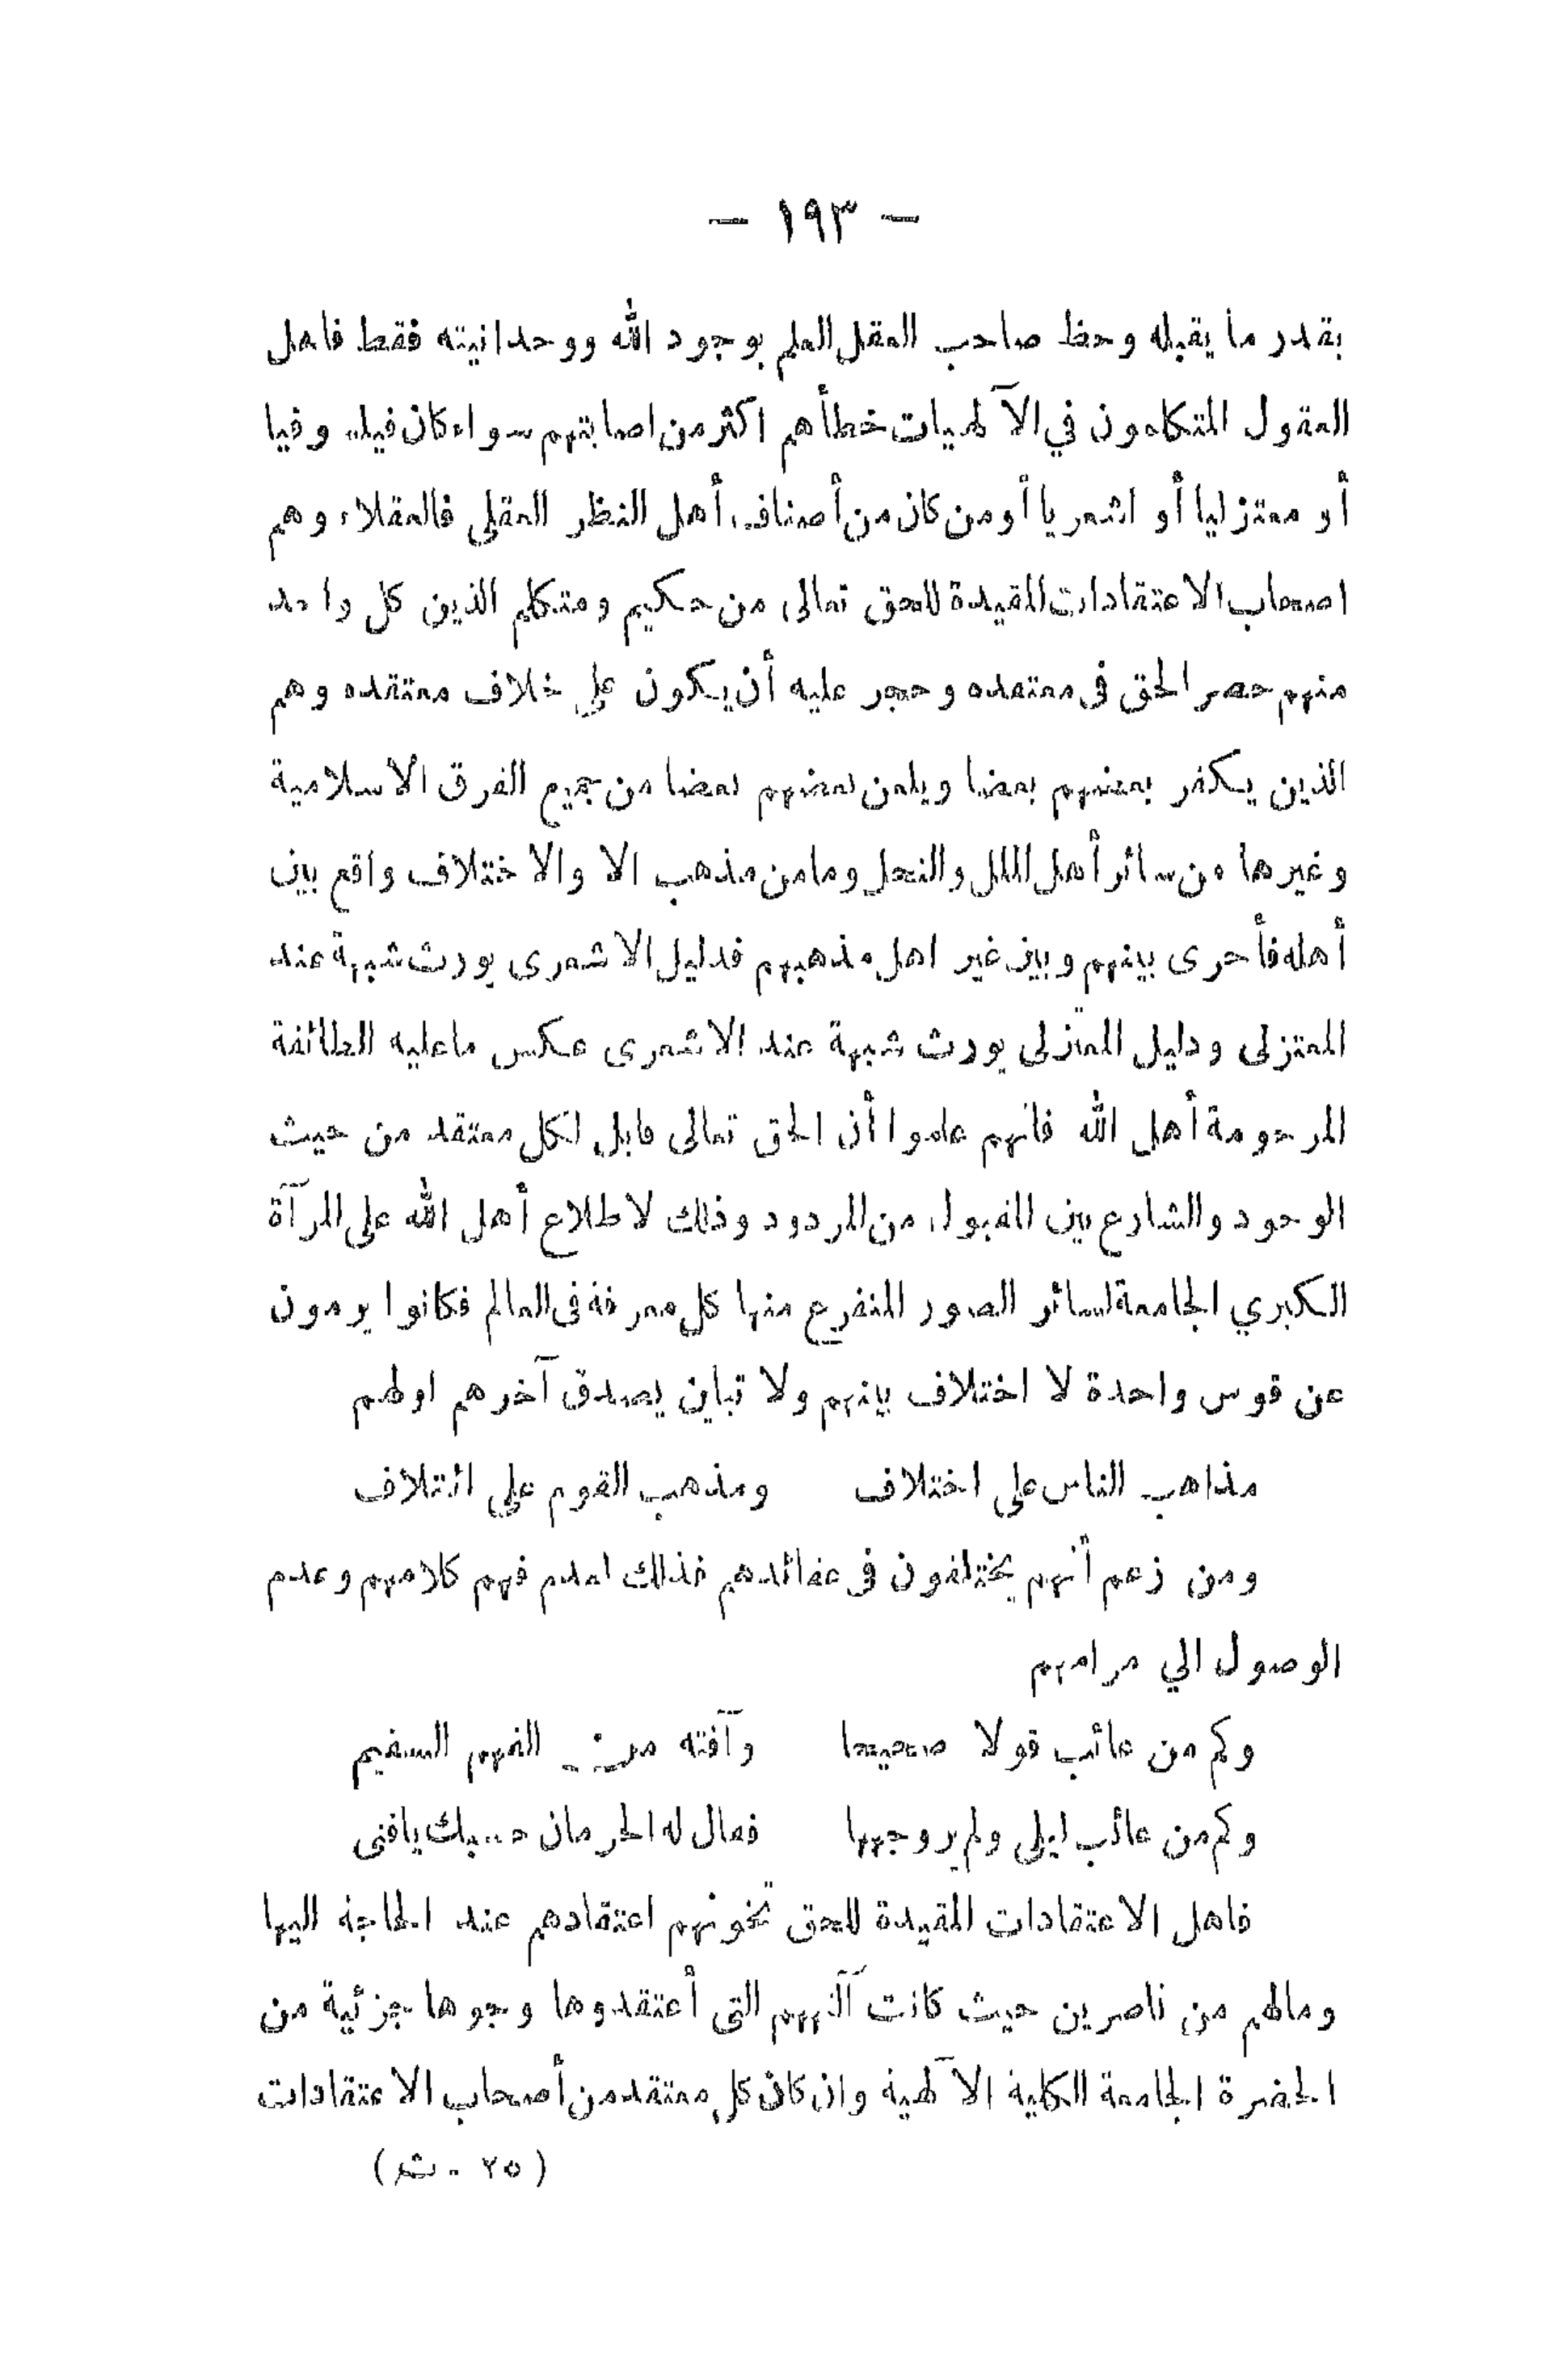 — ١٩٣ —
بقدر ما يقبله وحظ صاحب العقل العلم بوجود الله ووحدانيته فقط فاهل
العقول المتكلمون في الآلهيات خطأهم اكثر من اصابتهم سواء كان فيلسوفيا
أو معتزليا أو اشعريا أو من كان من أصناف أهل النظر العقلى فالعقلاء وهم
اصحاب الاعتقادات المقيدة للحق تعالى من حكيم ومتكلم الذين كل واحد
منهم حصر الحق فى معتقده وحجر عليه أن يكون على خلاف معتقده وهم
الذين يكفر بعضهم بعضا ويلعن بعضهم بعضا من جميع الفرق الاسلامية
وغيرها من سائر أهل الملل والنحل وما من مذهب الا والاختلاف واقع بين
أهله فأحرى بينهم وبين غير اهل مذهبهم فدليل الاشعرى يورث شبهة عند
المعتزلى ودليل المعتزلى يورث شبهة عند الاشعرى عكس ماعليه الطائفة
المرحومة أهل الله فانهم علموا أن الحق تعالى قابل لكل معتقد من حيث
الوجود والشارع بين المقبول من المردود وذلك لاطلاع أهل الله على المرآة
الكبري الجامعة لسائر الصور المتفرع منها كل معرفة فى العالم فكانوا يرمون
عن قوس واحدة لا اختلاف بينهم ولا تباين يصدق آخرهم اولهم
مذاهب الناس على اختلاف ومذهب القوم على ائتلاف
ومن زعم أنهم يختلفون فى عقائدهم فذلك لعدم فهم كلامهم وعدم
الوصول الي مرامهم
وكم من عائب قولا صحيحا وآفته من الفهم السقيم
وكم من عائب ليلى ولم ير وجهها فقال له الحرمان حسبك يافتى
فاهل الاعتقادات المقيدة للحق تخونهم اعتقادهم عند الحاجة اليها
ومالهم من ناصرين حيث كانت آلهتهم التى أعتقدوها وجوها جزئية من
الحضرة الجامعة الكلية الآلهية وان كان كل معتقد من أصحاب الاعتقادات
(٢٥ -